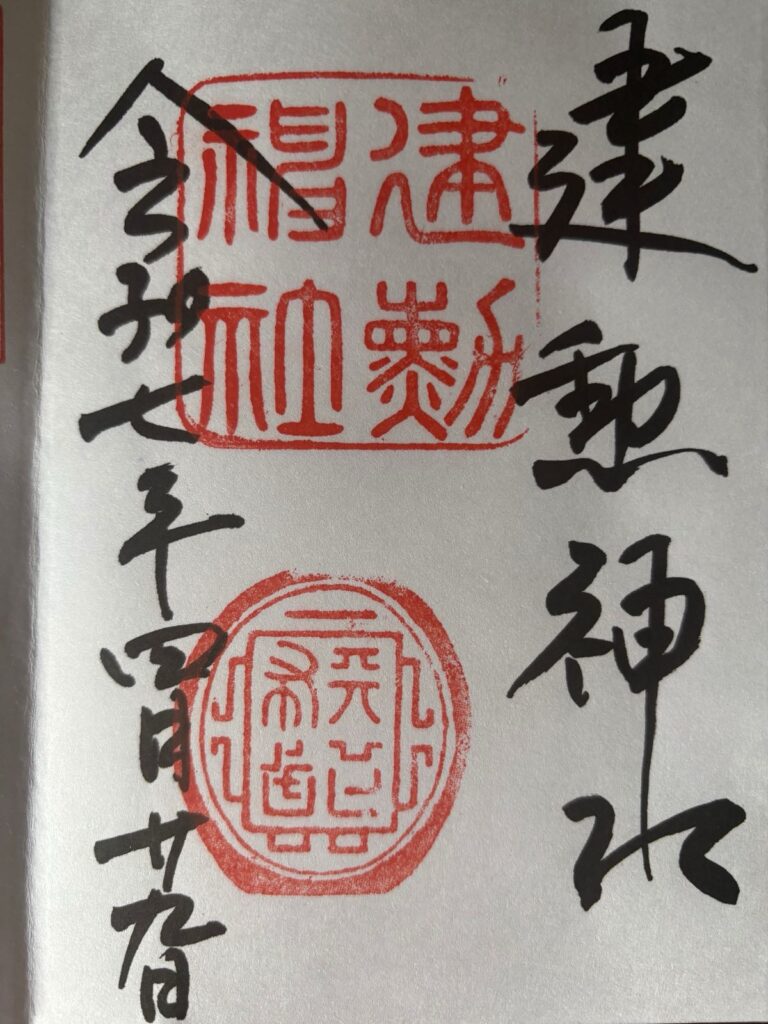 建勲神社
建勲
神社
令和七年四月廿九日